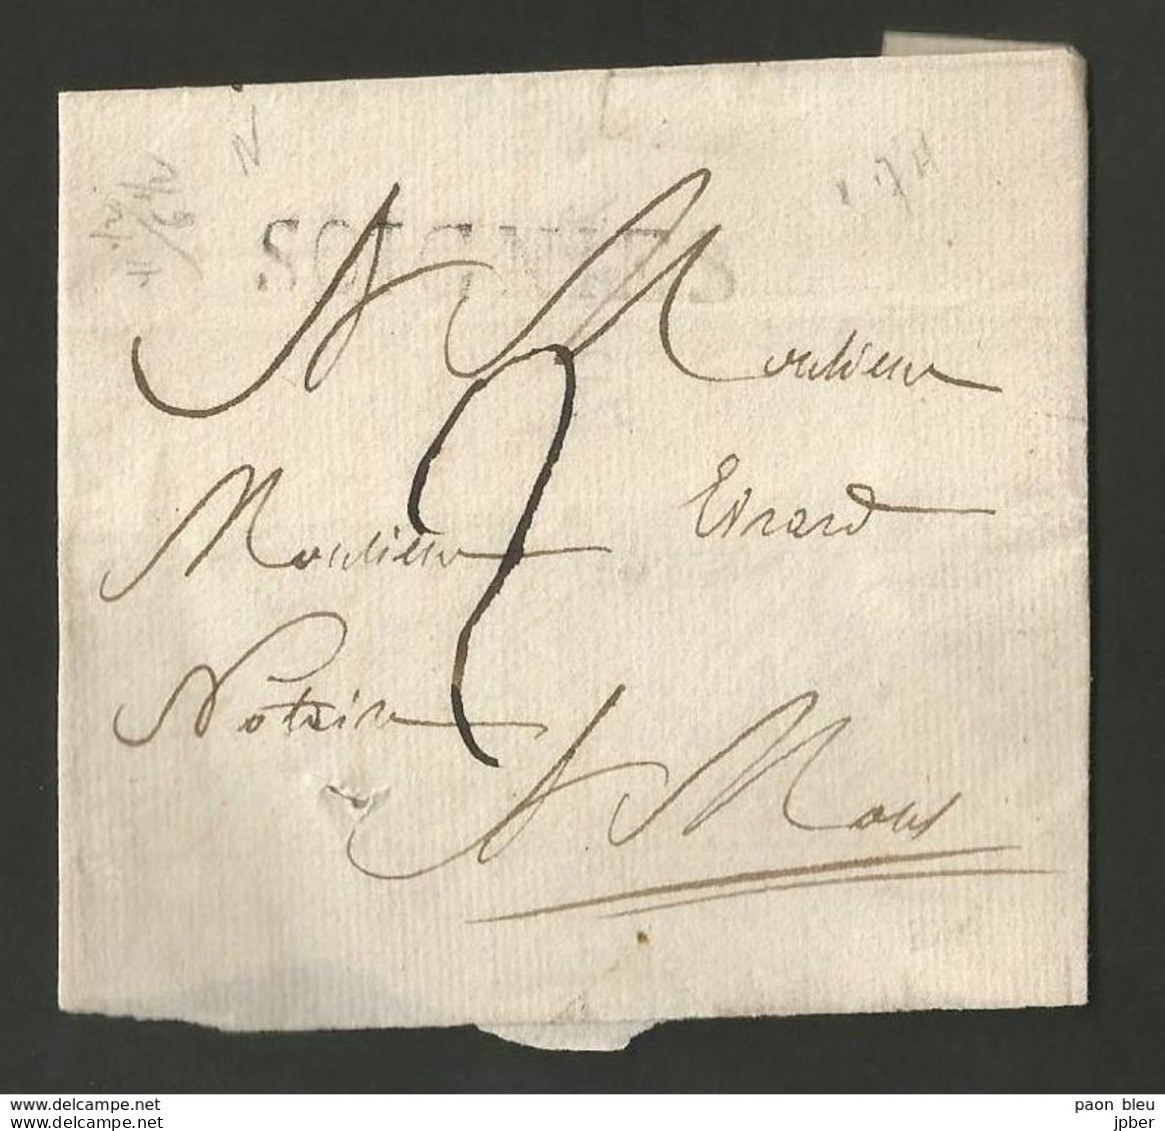 SOIGNIES
A Monsieur
2
Monsieur Evrard
Notaire
A Mons
www.delcampe.net
paon bleu
www.delcampe.net
jpber